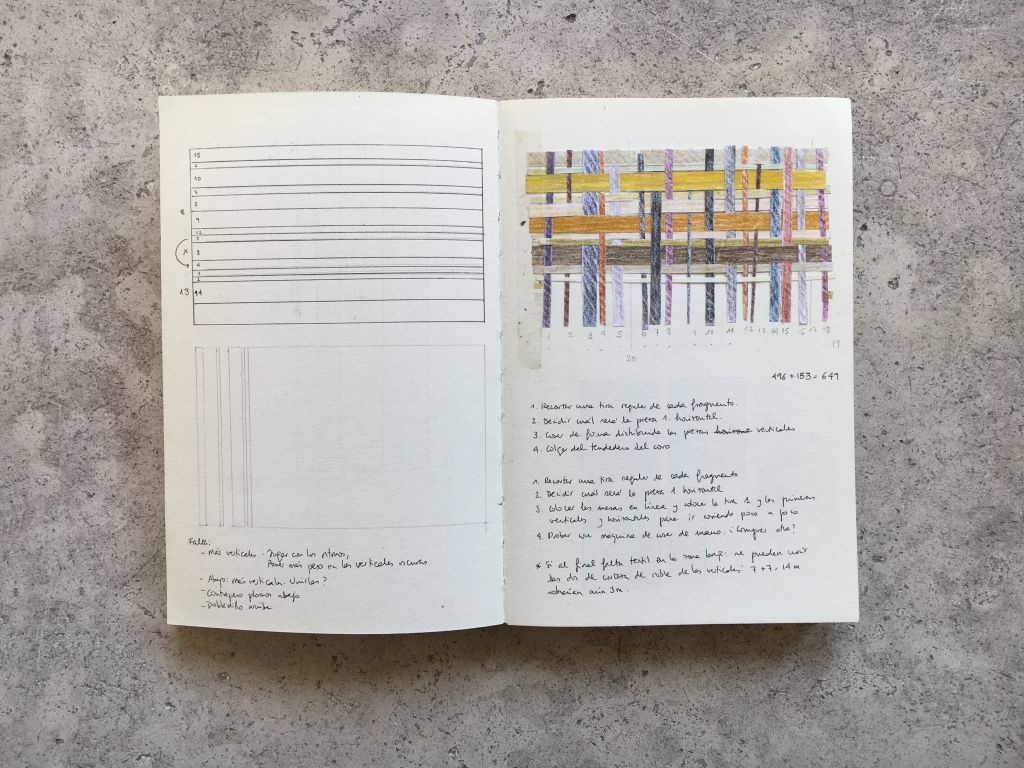 15
10
3
8
9
12
x
8
4
13 14
Falta:
- Más verticales. Jugar con los ritmos,
Poner más peso en las verticales oscuras
- Abajo: más verticales. Unirlas?
- Contrapeso plomos abajo
- Dobladillo arriba
1 2 3 4 5 6 7 8 9 10 11 12 13 14 15 16 17 18
19
20
496 + 153 = 649
1. Recortar una tira regular de cada fragmento.
2. Decidir cuál será la pieza 1. horizontal.
3. Coser de forma distribuida las piezas verticales
4. Colgar del tendedero del coro
1. Recortar una tira regular de cada fragmento
2. Decidir cuál será la pieza 1 horizontal
3. Colocar las mesas en línea y colocar la tira 1 y las primeras
verticales y horizontales para ir cosiendo poco a poco
4. Probar con maquina de coser de mano. ¿Comprar otra?
* Si al final falta textil en la zona baja: se pueden unir
las dos de corteza de roble de las verticales: 7 + 7 = 14 m
sobrarían aún 3 m.